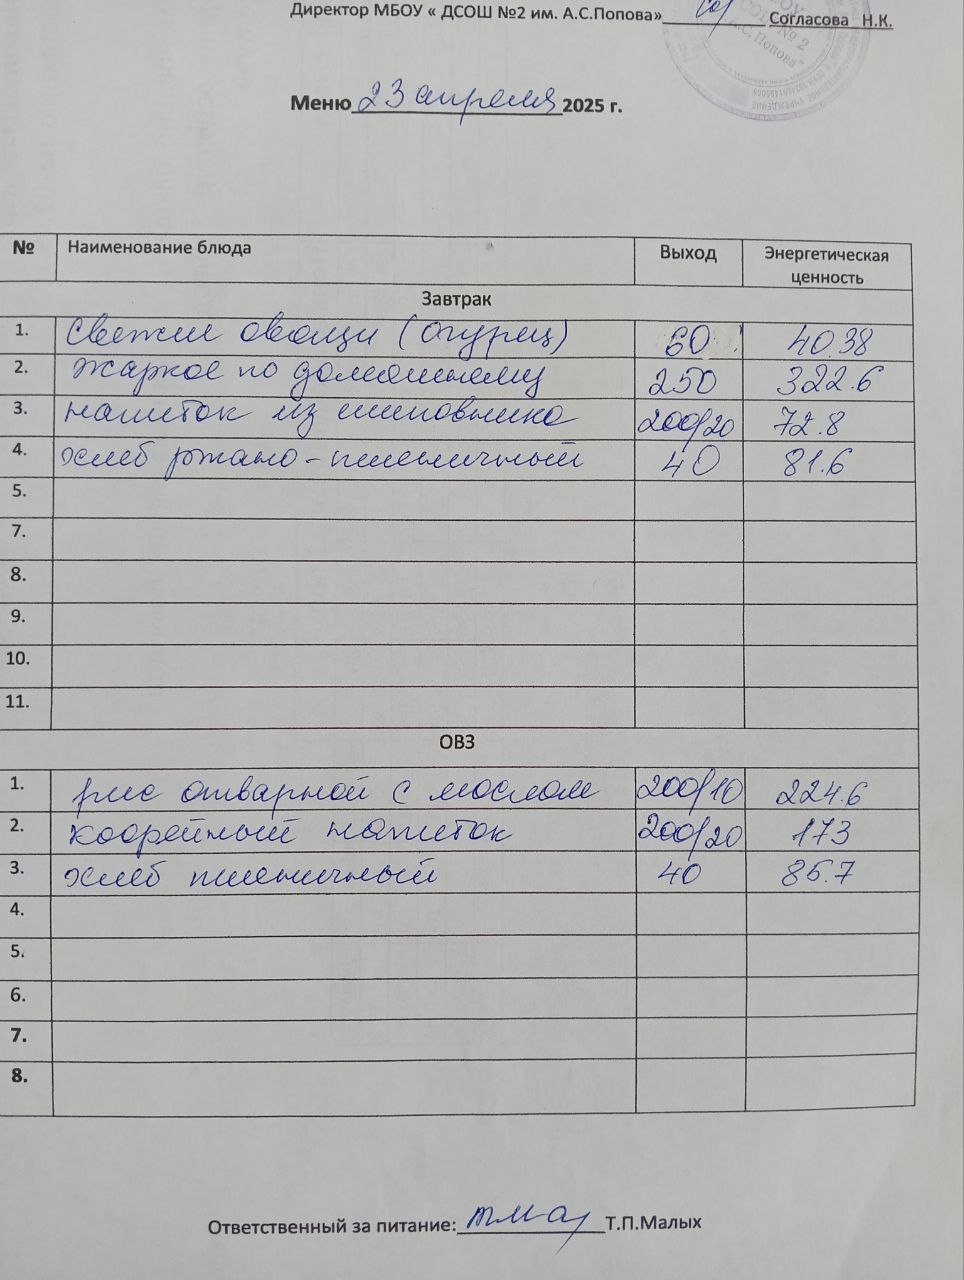 Директор МБОУ « ДСОШ №2 им. А.С.Попова» Согласова Н.К.
Меню 23 апреля 2025 г.
№ Наименование блюда Выход Энергетическая ценность
Завтрак
1. Свежие овощи (огурец) 60 40.38
2. Жаркое по домашнему 250 322.6
3. напиток из шиповника 200/20 72.8
4. хлеб ржано-пшеничный 40 81.6
5.
7.
8.
9.
10.
11.
ОВЗ
1. рис отварной с маслом 200/10 224.6
2. кофейный напиток 200/20 173
3. хлеб пшеничный 40 85.7
4.
5.
6.
7.
8.
Ответственный за питание: Т.П.Малых